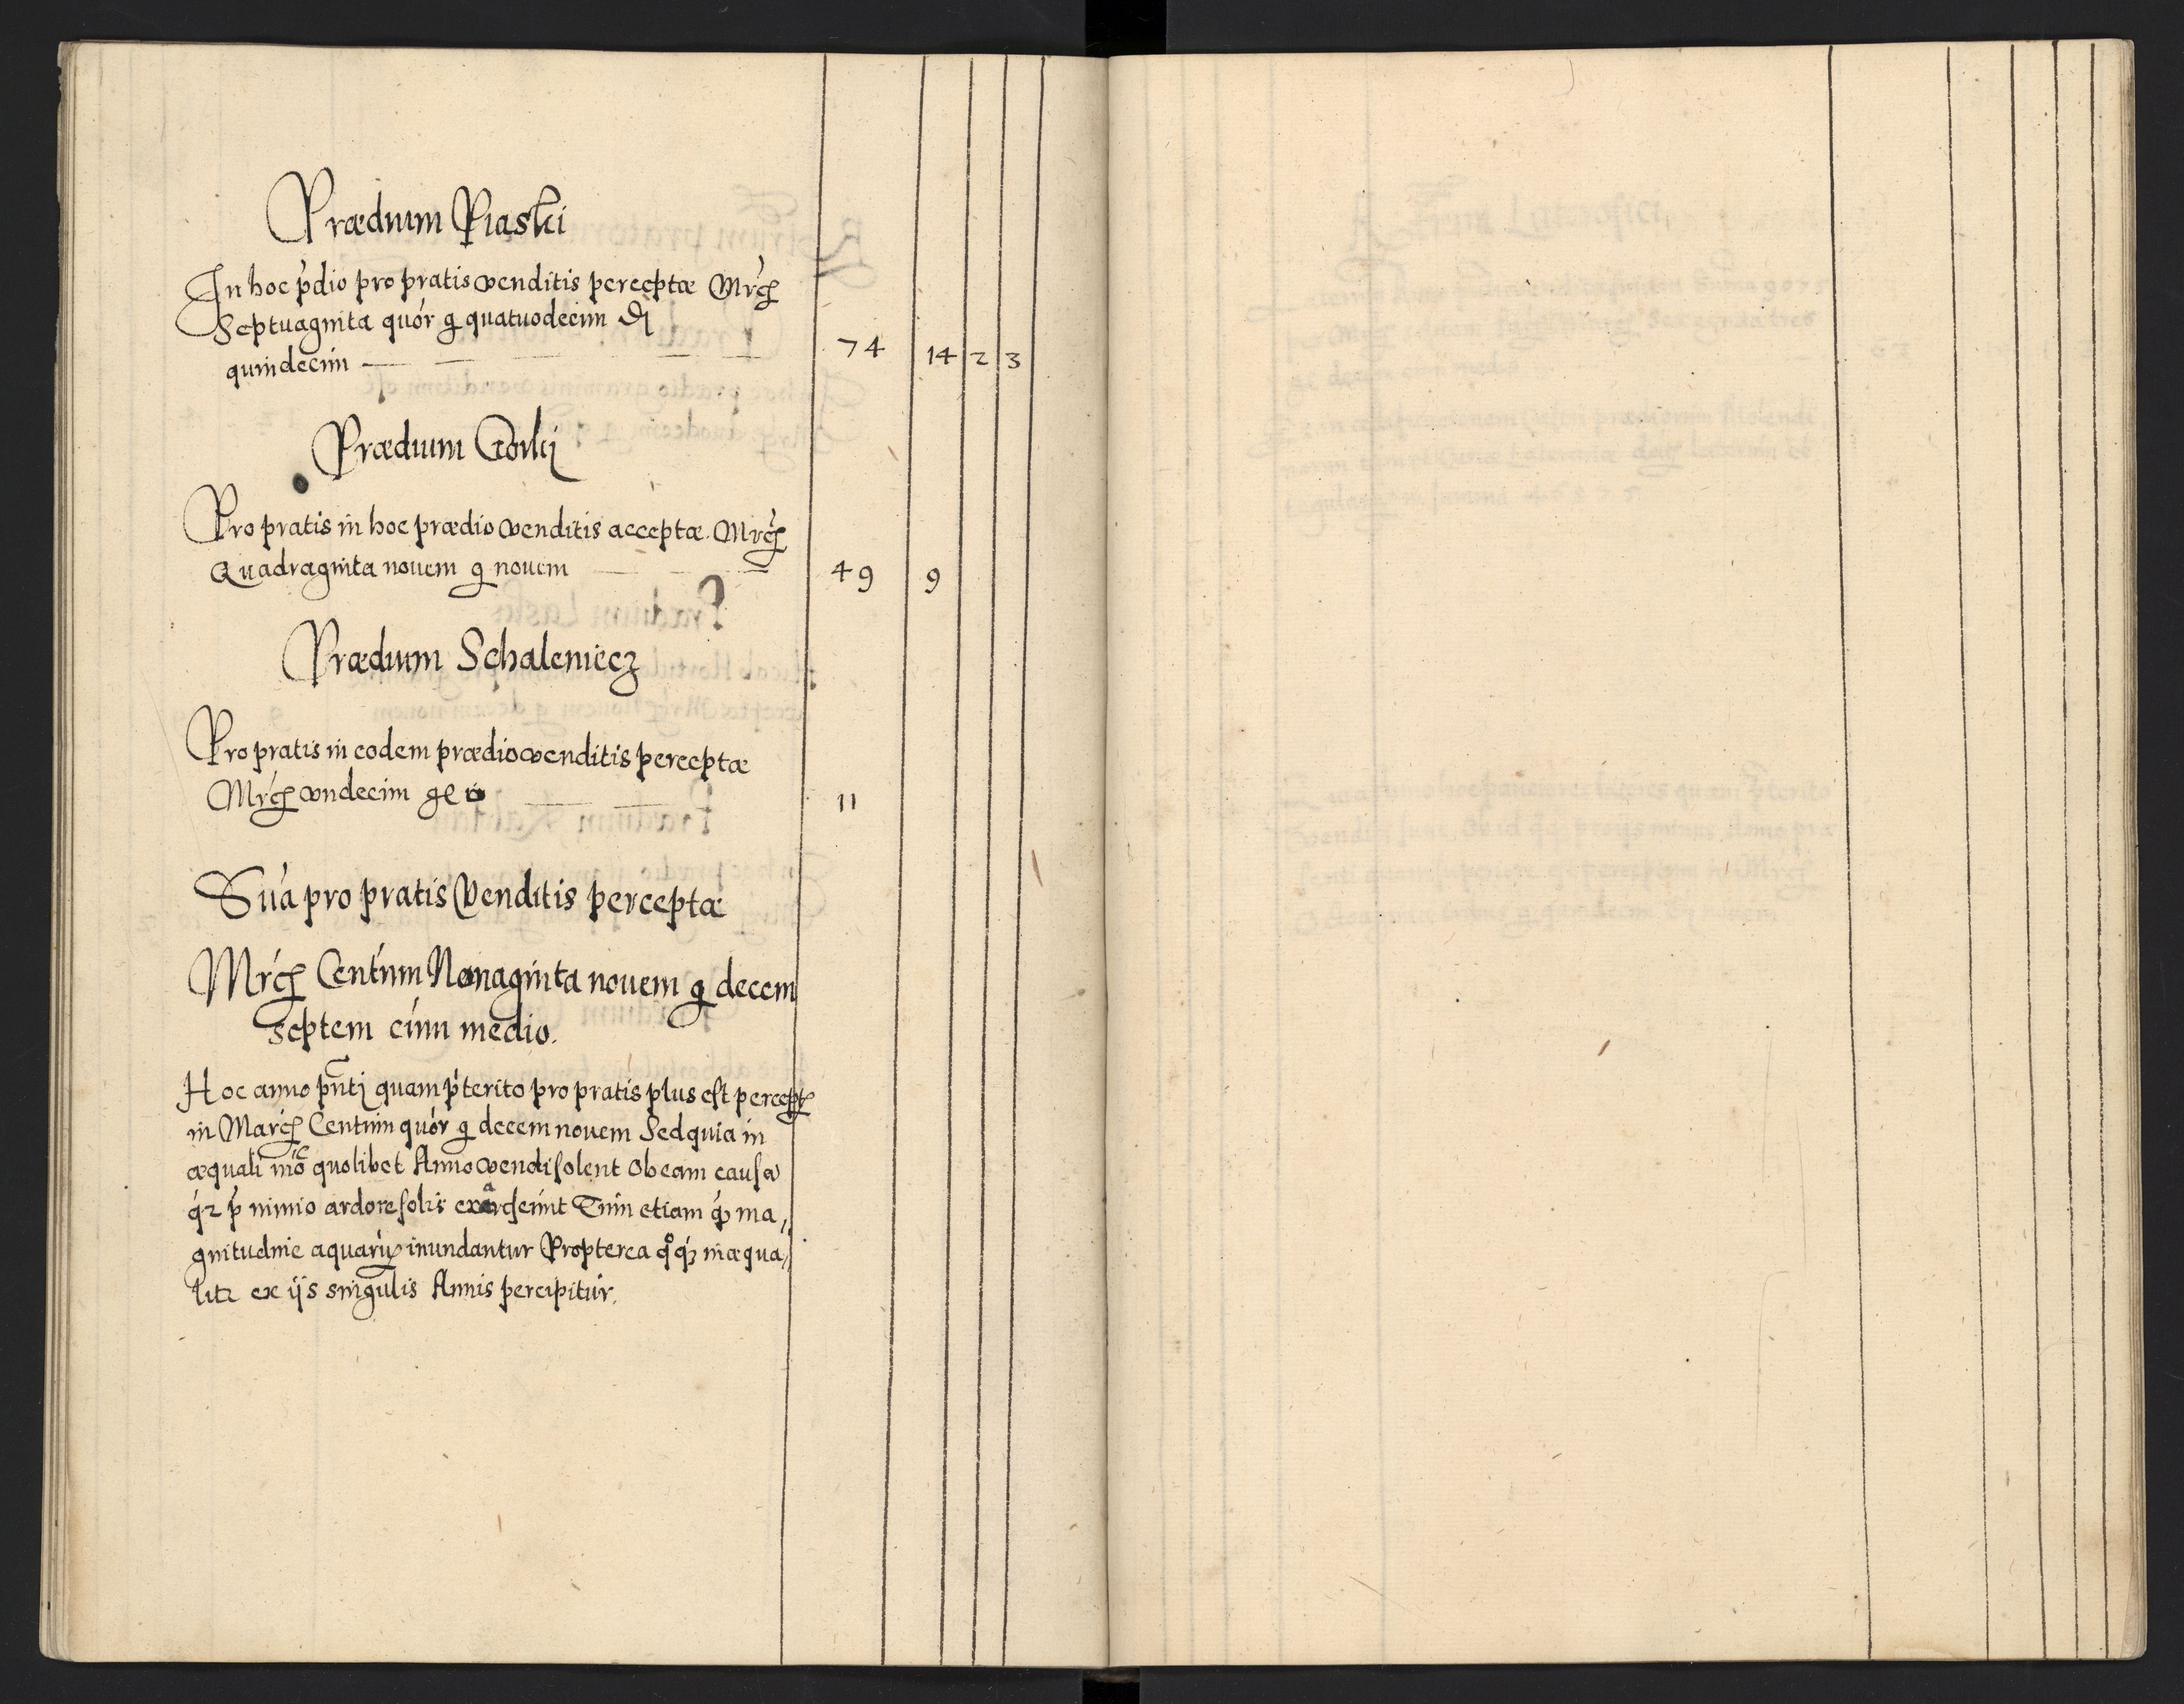 Prædium Piaski
In hoc pdio pro pratis venditis perceptæ Mrcs
Septuaginta quór g quatuodecim
quindecim 74 14 2 3
Prædium Gorki
Pro pratis in hoc prædio venditis acceptæ Mrcs
Quadraginta nouem g nouem 49 9
Prædium Schaleniecz
Pro pratis in eodem prædio venditis perceptæ
Mrcs vndecim 11
Sua pro pratis Venditis perceptæ
Mrcs Centum Nonaginta nouem g decem
septem cum medio.
Hoc anno pnti quam pterito pro pratis plus est
in Marcs Centum quór g decem nouem Sed quia in
æquali mo quolibet Anno vendi solent Ob eam causa
qz p nimio ardore solis Tum etiam qp ma,
gnitudine aquaru inundantur Propterea qqz inæqua,
litr ex ijs singulis Annis percipitur.